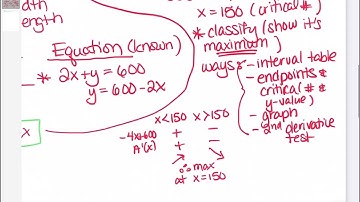 ength
Equation (known)
* 2x+y=600
y=600-2x
x
x=150 (critical #)
* classify (show it's
maximum)
ways - interval table
- endpoints &
critical (#'s
y-value)
- graph
- 2nd derivative
test
x<150 x>150
-4x+600 + -
A'(x) + -
∴ max
at x=150